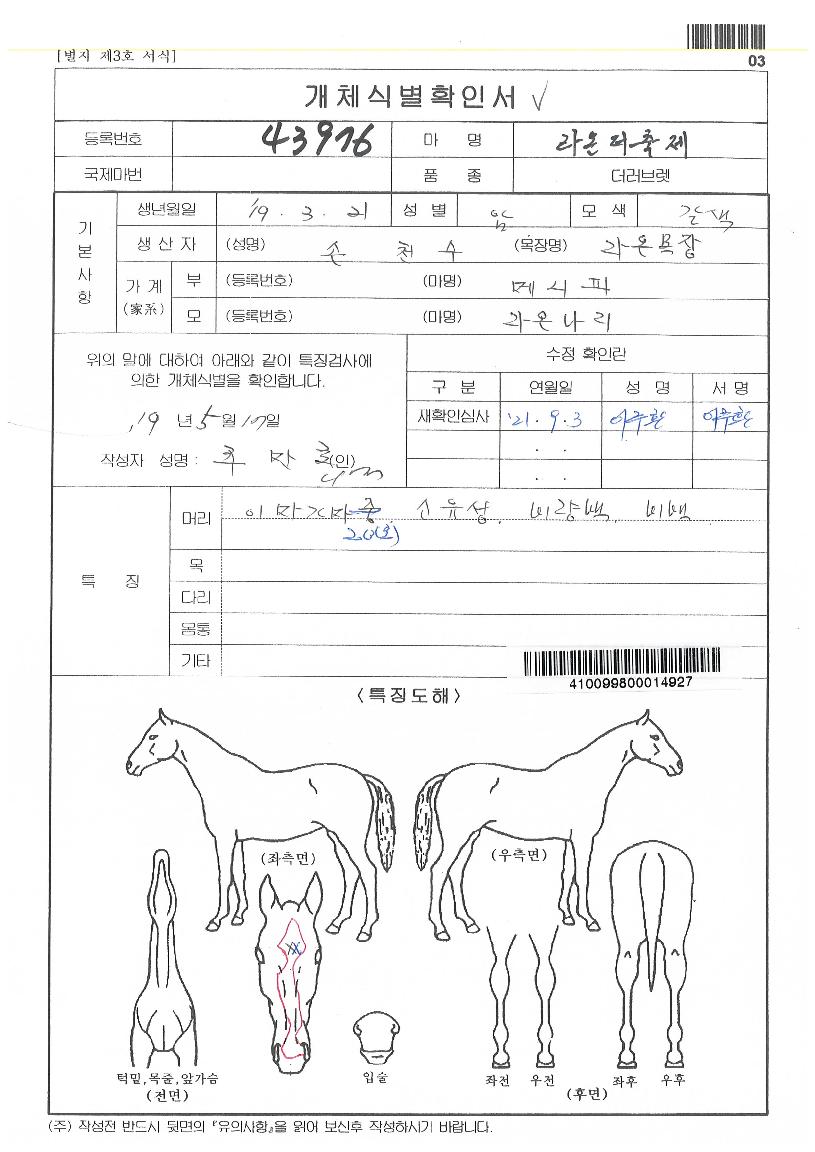 [별지 제3호 서식]
03
개체식별확인서 √
등록번호 43976 마 명 라온퍼축제
국제마번 품 종 더러브렛
기본사항
생년월일 '19 . 3 . 21 성 별 암 모 색 갈색
생 산 자 (성명) 손 천 수 (목장명) 라온목장
가 계 (家系) 부 (등록번호) (마명) 메니피
모 (등록번호) (마명) 라온나리
위의 말에 대하여 아래와 같이 특징검사에
의한 개체식별을 확인합니다.
'19 년 5 월 10 일
작성자 성명 : (인)
수정 확인란
구 분 연월일 성 명 서 명
재확인심사 '21 . 9 . 3
. .
. .
특 징
머리 이마가마중 신유성, 비량백, 비백
20(호)
목
다리
몸통
기타
410099800014927
<특징도해>
(좌측면) (우측면)
턱밑,목줄,앞가슴
(전면)
입술
좌전 우전 좌후 우후
(후면)
(주) 작성전 반드시 뒷면의 『유의사항』을 읽어 보신후 작성하시기 바랍니다.